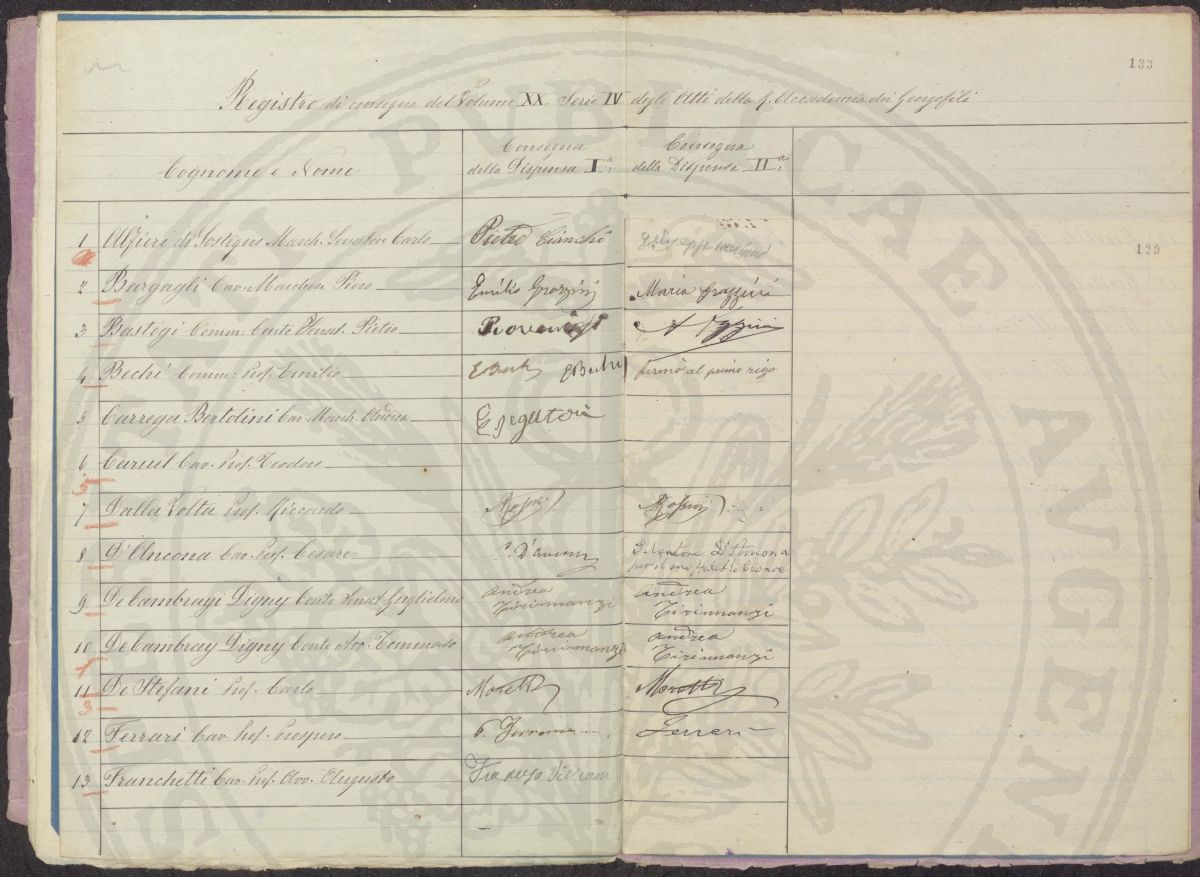 133
Registro di consegna del Volume XX Serie IV degli Atti della R. Accademia dei Georgofili
Cognome e Nome
Consegna
della Dispensa Iª
Consegna
della Dispensa IIª
139
1 Alfieri di Sostegno March. Senatore Carlo Pietro Bianchi
2 Bargagli Cav. Marchese Piero Emilio Grazzini Maria Grazzini
3 Bastogi Comm. Conte Senat. Pietro
4 Bechi Comm. Prof. Emilio E Bechi E Bechi firmò al primo rigo
5 Carrega Bertolini Cav. March. Andrea
6 Caruel Cav. Prof. Teodoro
5
7 Dalla Volta Prof. Riccardo
8 D'Ancona Cav. Prof. Cesare D'Ancona Salvatore D'Ancona
per il suo fratello Cesare
9 De Cambray Digny Conte Senat. Guglielmo Andrea Tirinnanzi Andrea Tirinnanzi
10 De Cambray Digny Conte Avv. Tommaso Andrea Tirinnanzi Andrea Tirinnanzi
1
11 De Stefani Prof. Carlo Moretti Moretti
3
12 Ferrari Cav. Prof. Prospero Ferrari
13 Franchetti Cav. Prof. Avv. Augusto
PUBLICAE AUGEN